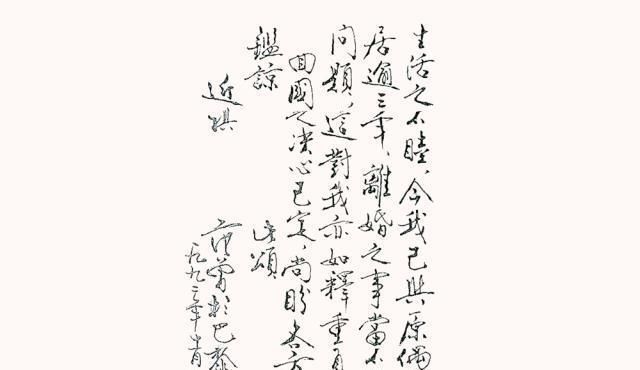 生活之不睦,今我已與原偶
居逾三年、離婚之事當不
问题,這對我亦如釋重負
回國之决心已定,尚盼各方
鑑諒 此頌
近祺
范曾於巴黎
一九九三年